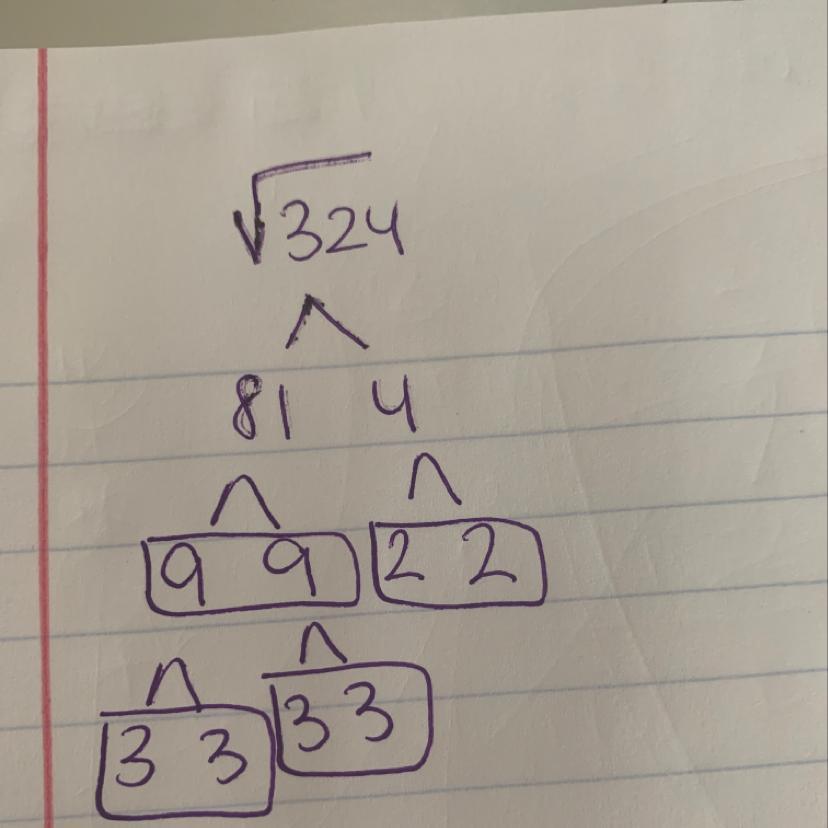 √324
81 4
9 9 2 2
3 3 3 3